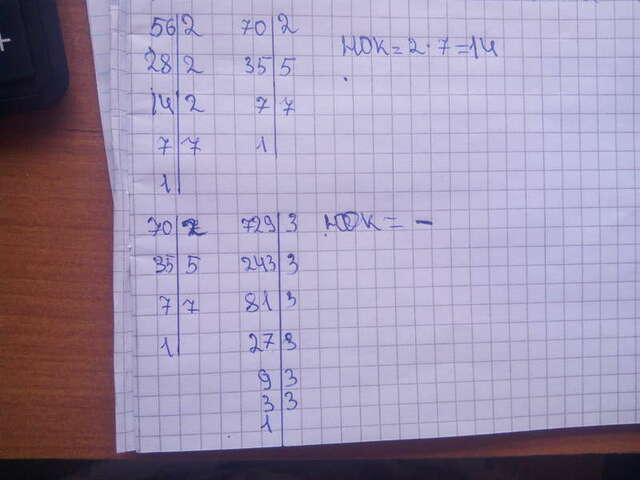 56|2 70|2 НОК=2·7=14
28|2 35|5
14|2 7|7
7|7 1|
1|
70|2 729|3 НОК= -
35|5 243|3
7|7 81|3
1| 27|3
9|3
3|3
1|